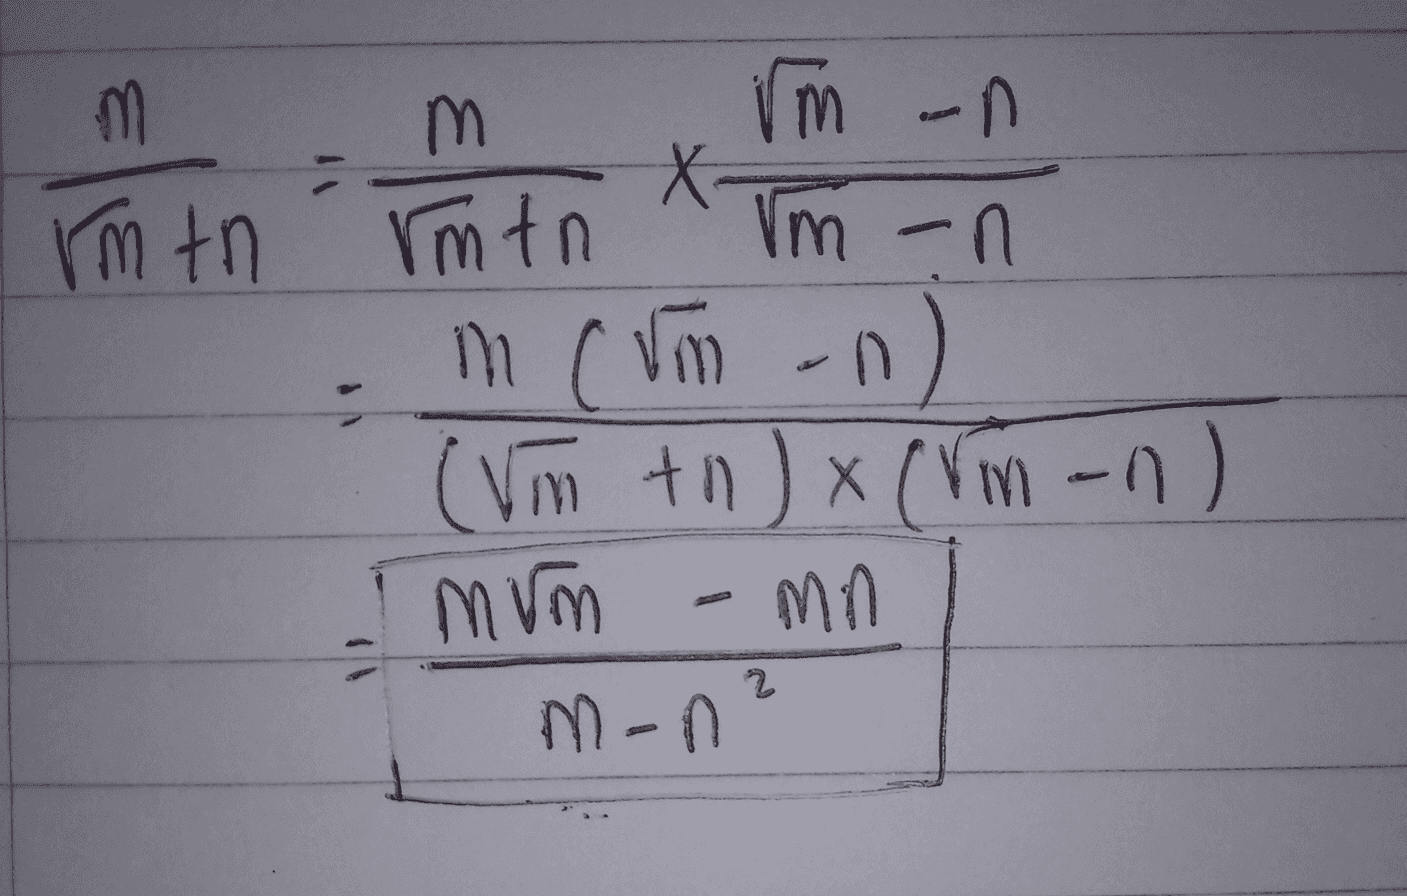 m/(√m + n) = m/(√m + n) × (√m - n)/(√m - n)
= m(√m - n)/((√m + n) × (√m - n))
= (m√m - mn)/(m - n²)